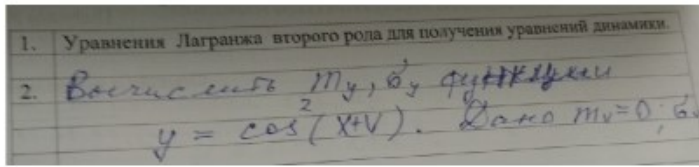 1. Уравнения Лагранжа второго рода для получения уравнений динамики.
2. Вычислить m_y, σ_y функции
y = cos²(X+V). Дано m_v=0; σ_v